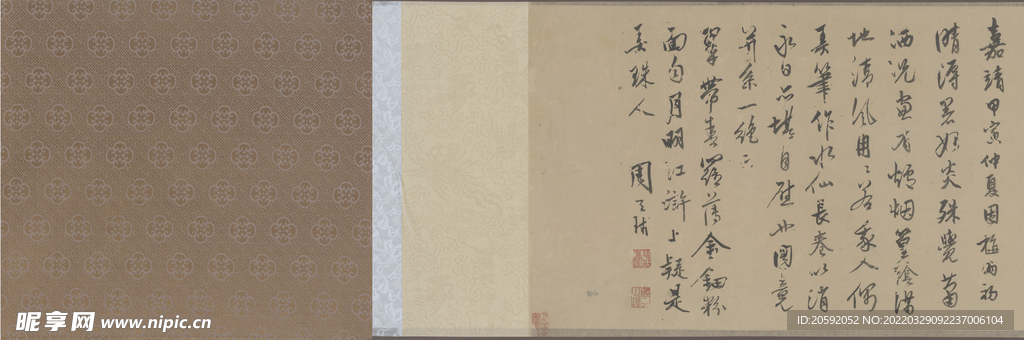 嘉靖甲寅仲夏因梅雨初
晴溽暑如炎殊覺蕭
洒況室有爐烟篁蔭滿
地清風冉冉若來人偶
弄筆作水仙長卷以消
永日
並系一絕云
翠帶青羅薄金鈿粉
面勻月明江滸上疑是
弄珠人 周天球
昵享网 www.nipic.cn
ID:20592052 NO:20220329092237006104